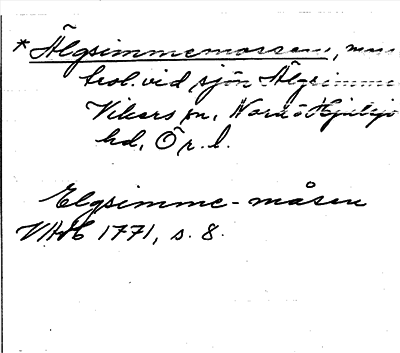 * Älgsimmemossen, mos
trol. vid sjön Älgsimme
Vikers sn, Nora o Hjulsjö
hd, Ör. l.
Elgsimme-måsen
VAH 1771, s. 8.